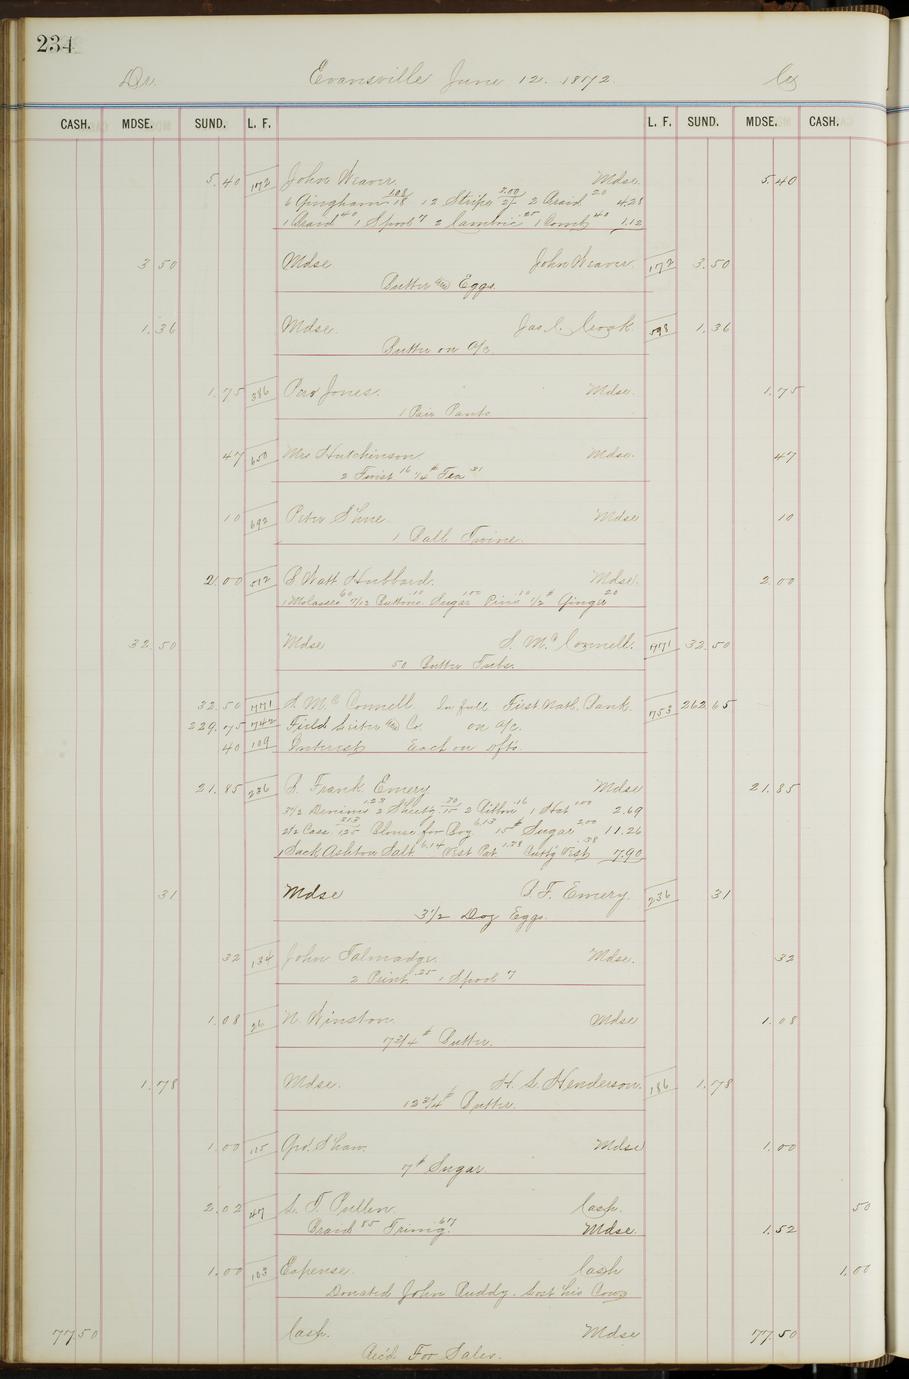 234
Dr. Evansville June 12. 1892. Cr
CASH. MDSE. SUND. L. F. L. F. SUND. MDSE. CASH.
5.40 172 John Weaver. Mdse. 5.40
6 Gingham 108/18 12 Stripe 3.00/25 2 Braid 20 4.28
1 Braid 40 1 Spool 7 2 Cambric .25 1 Comb 40 1.12
3 50 Mdse John Weaver. 172 3.50
Butter and Eggs.
1.36 Mdse. Jas. C. Crook 598 1.36
Butter on a/c.
1.75 386 Perv Jones. Mdse. 1.75
1 Pair Pants
47 650 Mrs Hutchinson Mdse. 47
2 Twist 16 1/4 # Tea 31
10 692 Peter Shue Mdse 10
1 Ball Twine.
2.00 512 S Watt Hubbard. Mdse. 2.00
1 Molasses 60 7/12 Buttons 10 Sugar 100 Pins 10 1/2 # Ginger 20
32.50 Mdse S. Mc Connell. 771 32.50
50 Butter Tubs.
32.50 771 S. Mc Connell In full First Natl. Bank. 753 262.65
229.75 742 Field Leiter and Co. on a/c.
40 109 Interest Each on dfts.
21.85 236 B. Frank Emery Mdse 21.85
3 1/2 Denims .53 2 Sheets 30/15 2 Cotton .16 1 Hat 1.00 2.69
2 1/2 Cass. 313/125 Blouse for Boy 6.13 15 # Sugar 2.00 11.26
1 Sack Ashton Salt 6.14 Pat. 1.38 .38 7.90
31 Mdse B. F. Emery. 236 31
3 1/2 Doz Eggs.
32 134 John Talmadge. Mdse. 32
2 Print .25 1 Spool 7
1.08 26 N. Winston. Mdse 1.08
7 3/4 # Butter.
1.78 Mdse. H. L. Henderson. 186 1.78
12 3/4 # Butter.
1.00 115 Geo. Shaw. Mdse 1.00
7 # Sugar
2.02 47 S. T. Pullen. Cash. 50
Braid 85 Trimg. 67 Mdse. 1.52
1.00 103 Expense. Cash 1.00
Donated John Ruddy. Lost his Cow
77.50 Cash. Mdse 77.50
Rec'd For Sales.